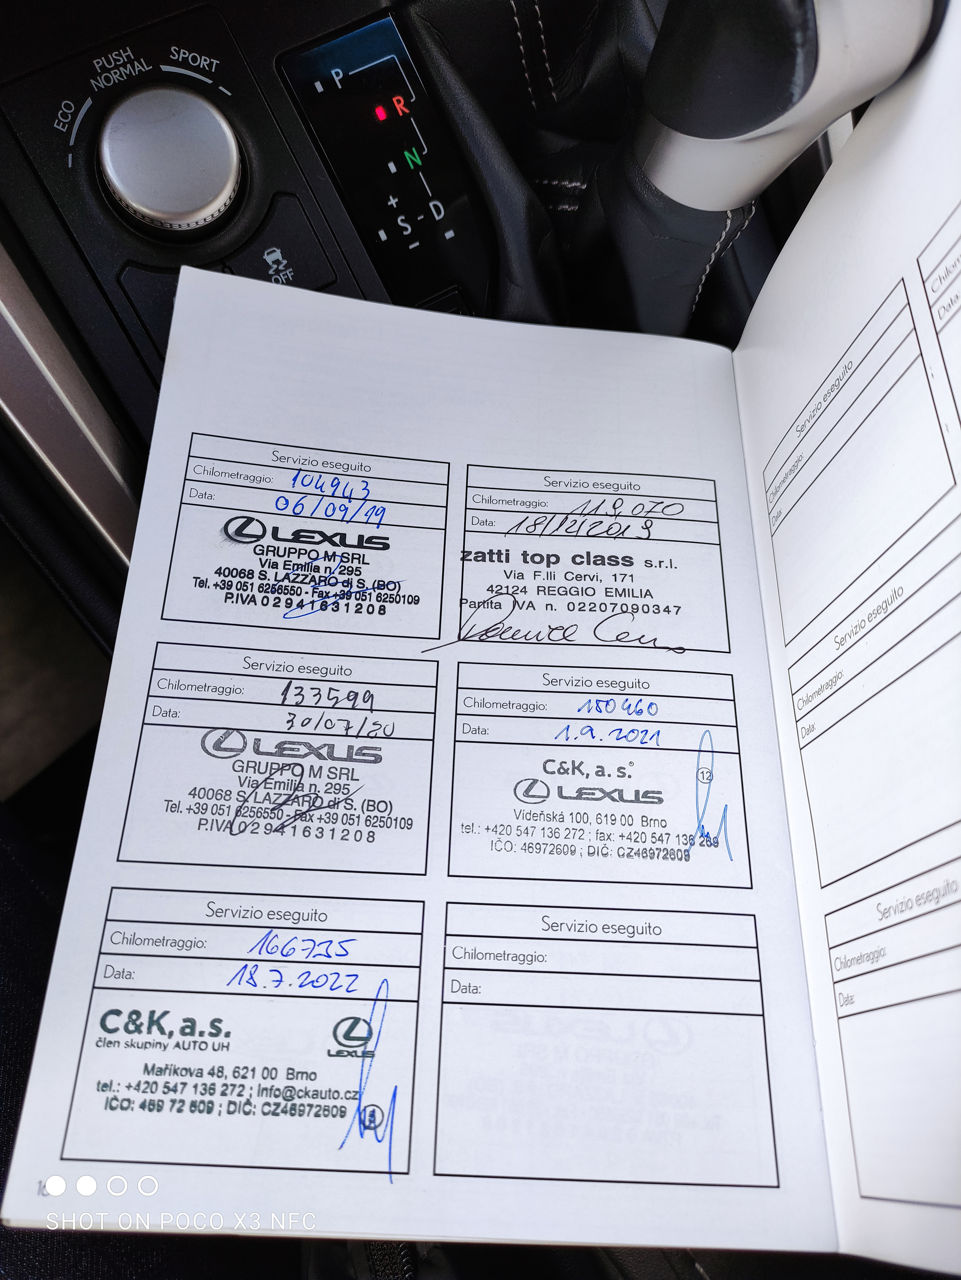 PUSH
NORMAL
SPORT
ECO
P
R
N
+
S - D
-
OFF
Servizio eseguito
Chilometraggio: 104943
Data: 06/09/19
LEXUS
GRUPPO M SRL
Via Emilia n. 295
40068 S. LAZZARO di S. (BO)
Tel. +39 051 6256550 - Fax +39 051 6250109
P.IVA 02941631208
Servizio eseguito
Chilometraggio: 119.070
Data: 18/12/2019
zatti top class s.r.l.
Via F.lli Cervi, 171
42124 REGGIO EMILIA
Partita IVA n. 02207090347
Servizio eseguito
Chilometraggio: 133599
Data: 30/07/20
LEXUS
GRUPPO M SRL
Via Emilia n. 295
40068 S. LAZZARO di S. (BO)
Tel. +39 051 6256550 - Fax +39 051 6250109
P.IVA 02941631208
Servizio eseguito
Chilometraggio: 150460
Data: 1.9.2021
12
C&K, a. s.
LEXUS
Vídeňská 100, 619 00 Brno
tel.: +420 547 136 272 ; fax: +420 547 136 269
IČO: 46972609 ; DIČ: CZ46972609
Servizio eseguito
Chilometraggio: 166735
Data: 18.7.2022
C&K, a.s.
člen skupiny AUTO UH
LEXUS
Maříkova 48, 621 00 Brno
tel.: +420 547 136 272 ; info@ckauto.cz
IČO: 469 72 609 ; DIČ: CZ46972609
Servizio eseguito
Chilometraggio:
Data:
Servizio eseguito
Chilometraggio:
Data:
Servizio eseguito
Chilometraggio:
Data:
Servizio eseguito
Chilometraggio:
Data:
SHOT ON POCO X3 NFC